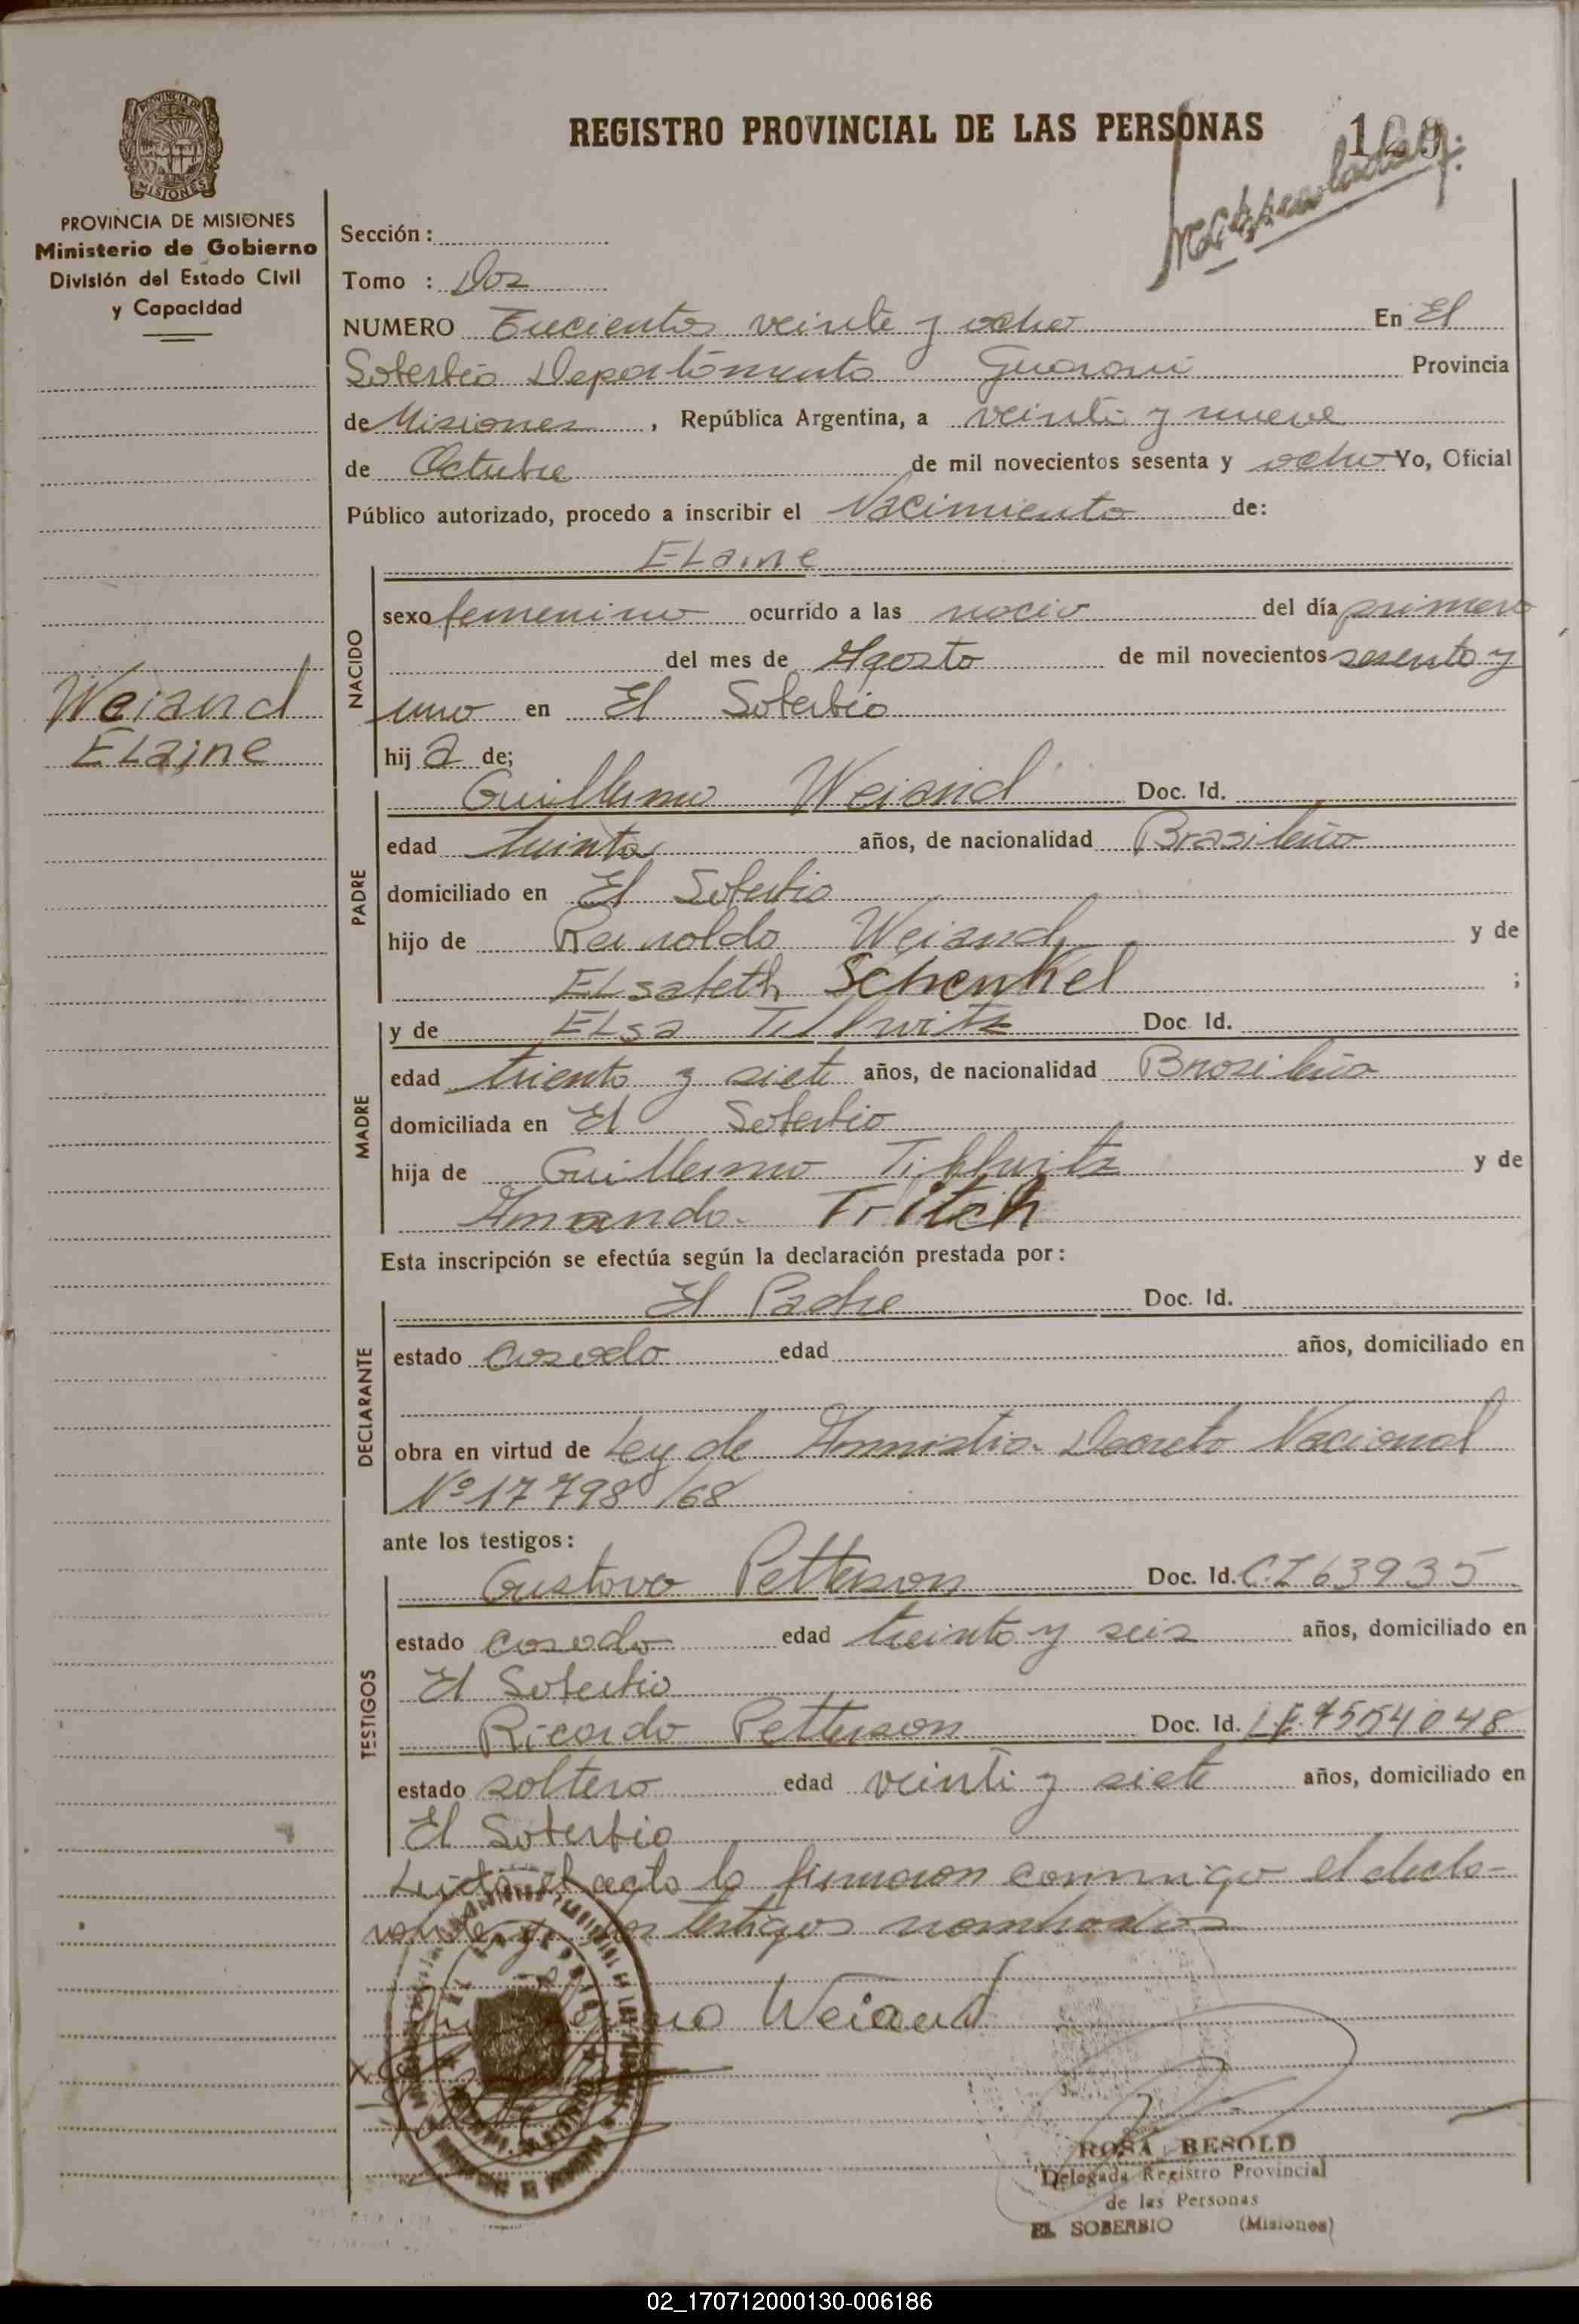 PROVINCIA DE MISIONES
Ministerio de Gobierno
División del Estado Civil
y Capacidad
Weiand
ELaine
REGISTRO PROVINCIAL DE LAS PERSONAS 129
Sección:
Tomo : Dos
NUMERO Trecientos veinte y ocho En El
Soberbio Departamento Guarani Provincia
de Misiones, República Argentina, a veinti y nueve
de Octubre de mil novecientos sesenta y ocho Yo, Oficial
Público autorizado, procedo a inscribir el Nacimiento de:
NACIDO
ELaine
sexo femenino ocurrido a las del día primero
del mes de Agosto de mil novecientos sesenta y
uno en El Soberbio
hija de;
PADRE
Guillermo Weiand Doc. Id.
edad treinta años, de nacionalidad Brasileño
domiciliado en El Soberbio
hijo de Reinoldo Weiand y de
ELsabeth Schenkel ;
MADRE
y de ELsa Doc. Id.
edad treinta y siete años, de nacionalidad Brasileña
domiciliada en El Soberbio
hija de Guillermo y de
Amanda Tritch
Esta inscripción se efectúa según la declaración prestada por:
DECLARANTE
El Padre Doc. Id.
estado casado edad años, domiciliado en
obra en virtud de Ley de Amnistia Decreto Nacional
Nº 17798/68
ante los testigos:
TESTIGOS
Gustavo Petterson Doc. Id. C.I 63935
estado casado edad treinta y seis años, domiciliado en
El Soberbio
Ricardo Petterson Doc. Id. L.E. 7554048
estado soltero edad veinti y siete años, domiciliado en
El Soberbio
Leida el acta la firmaron conmigo el decla-
rante y los testigos nombrados
Weiand
ROSA BESOLD
Delegada Registro Provincial
de las Personas
EL SOBERBIO (Misiones)
02_170712000130-006186